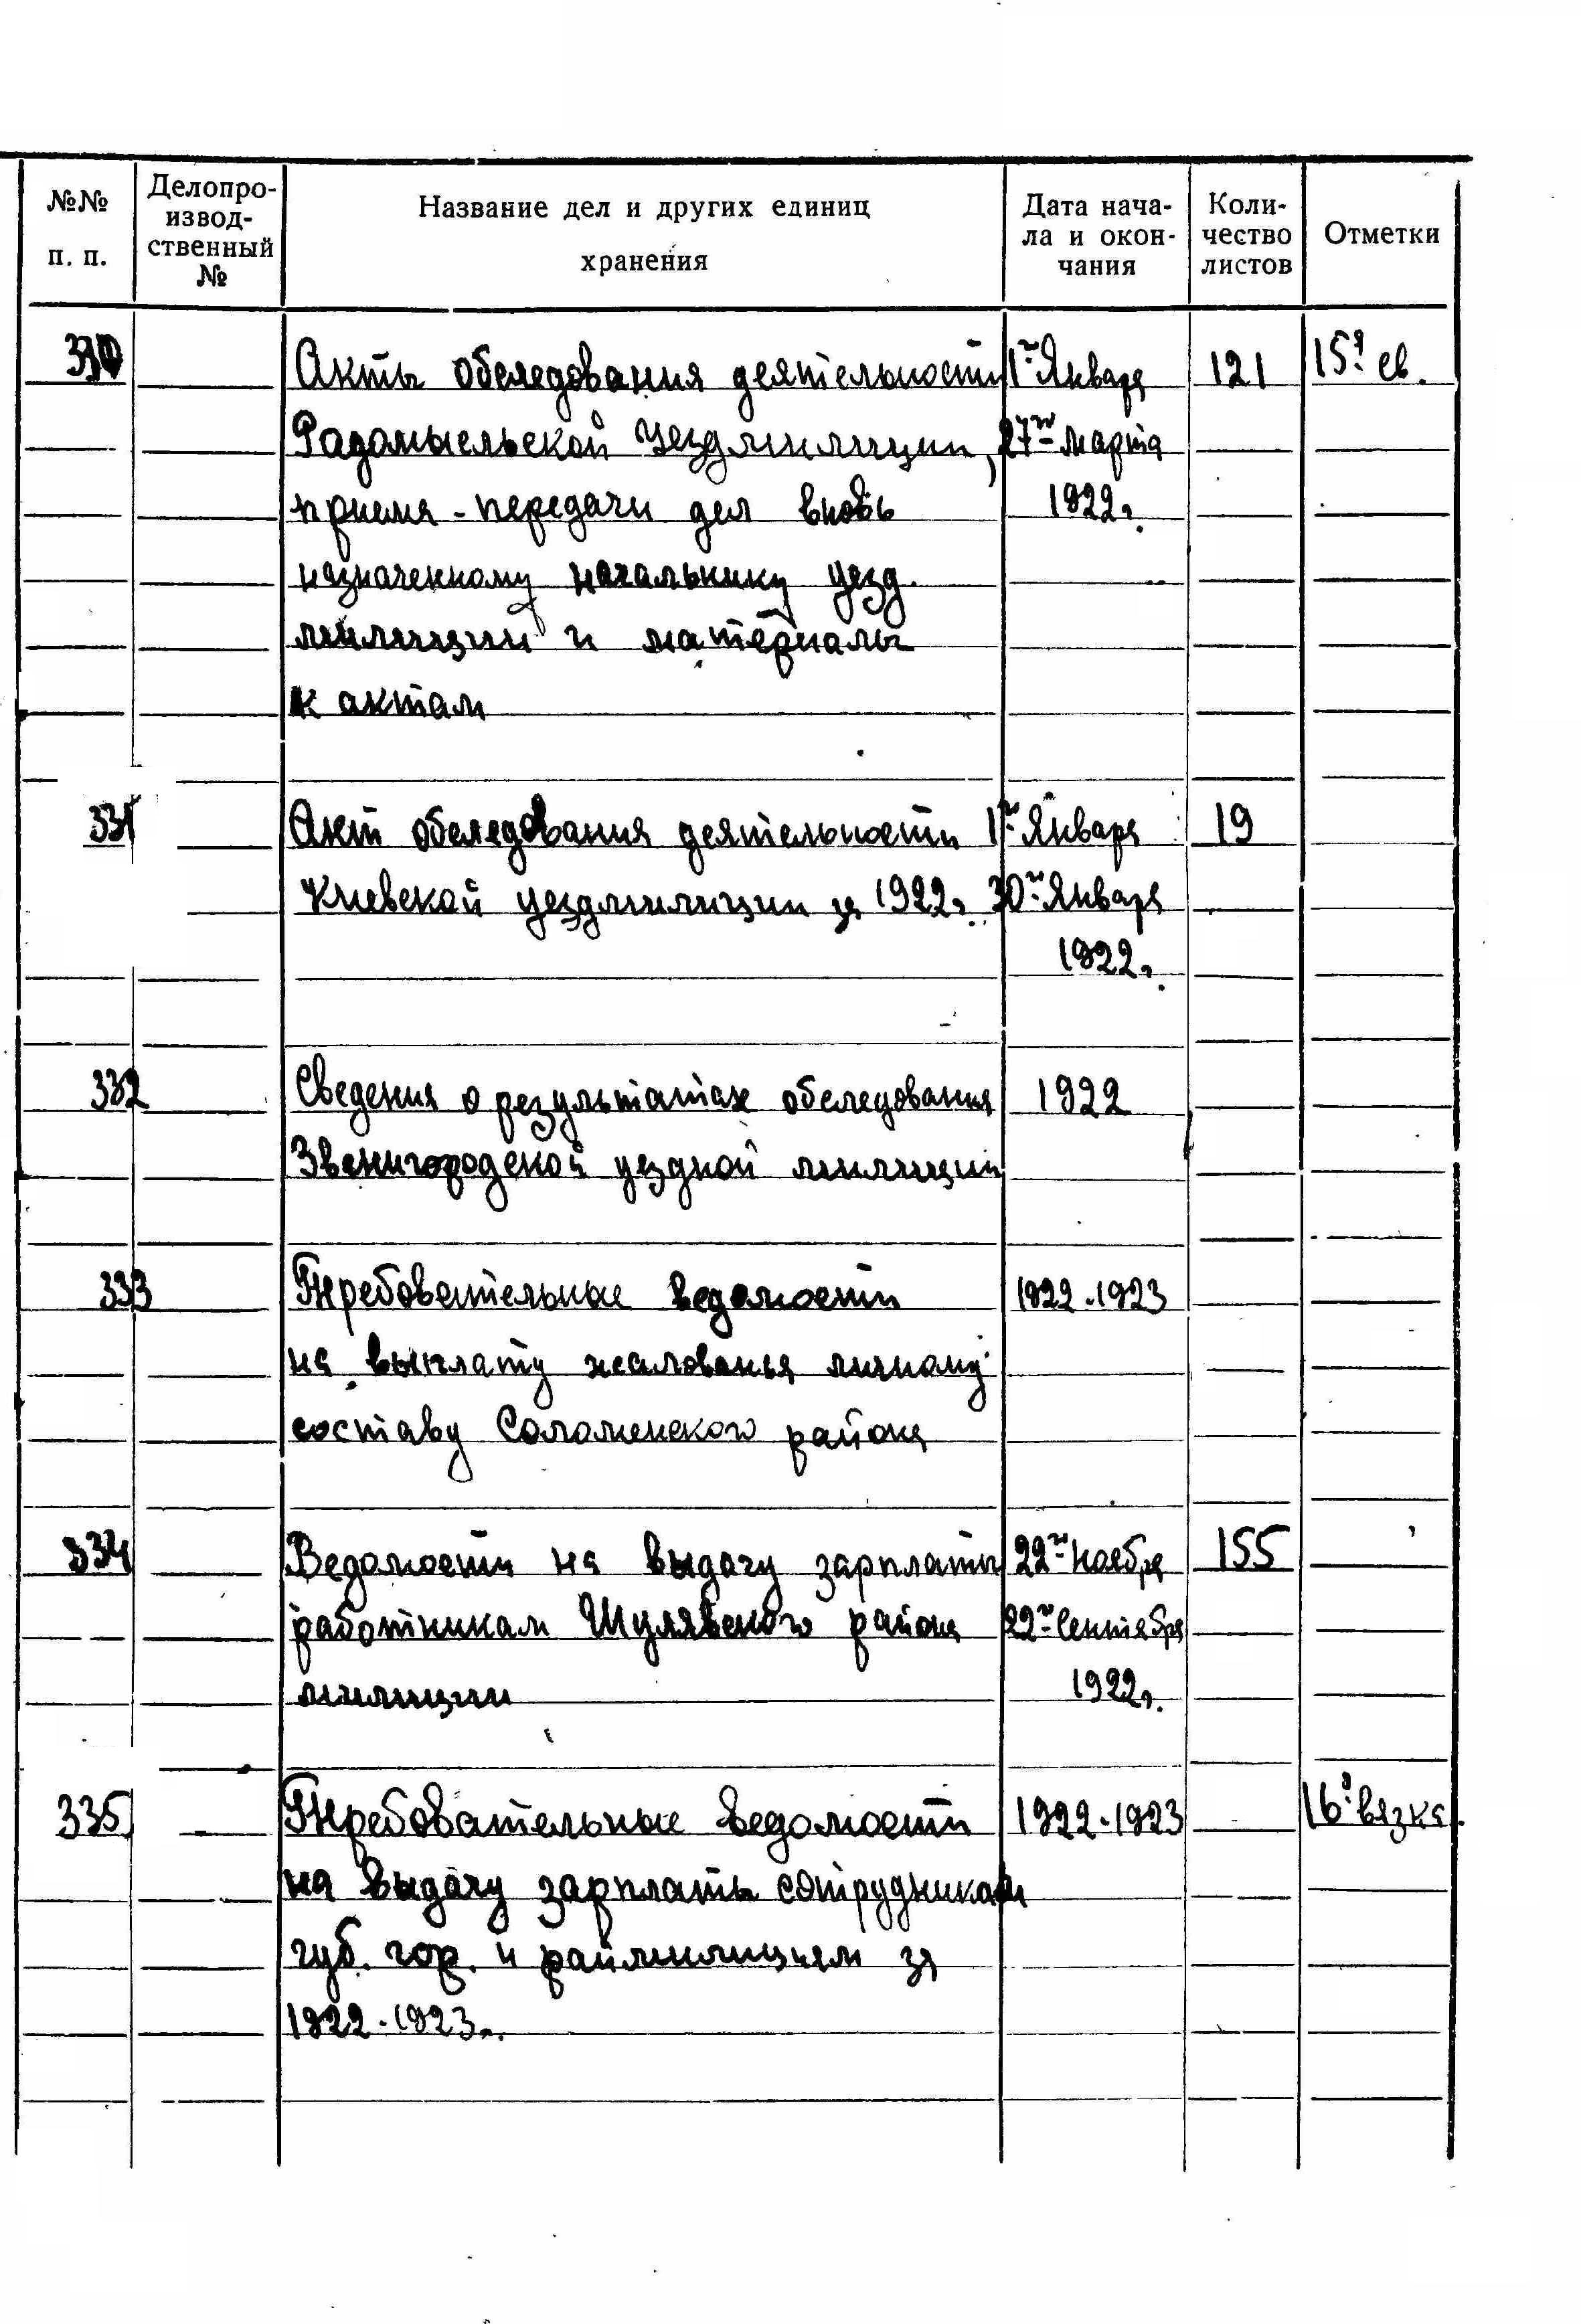 №№ п. п.
Делопро-
извод-
ственный
№
Название дел и других единиц
хранения
Дата нача-
ла и окон-
чания
Коли-
чество
листов
Отметки
330 Акты обследования деятельности 1го Января 121 15я св.
Радомысльской Уездмилиции, 27го марта
приема-передачи дел вновь 1922г.
назначенному начальнику уезд.
милиции и материалы
к актам
331 Акт обследования деятельности 1го Января 19
Киевской уездмилиции за 1922г. 30го Января
1922г.
332 Сведения о результатах обследования 1922
Звенигородской уездной милиции
333 Требовательные ведомости 1922-1923
на выплату жалованья личному
составу Соломенского района
334 Ведомости на выдачу зарплаты 22го ноября 155
работникам Шулявского района 22го Сентября
милиции 1922г.
335 Требовательные ведомости 1922-1923 16я вязка.
на выдачу зарплаты сотрудникам
губ. гор. и раймилициям за
1922-1923г.